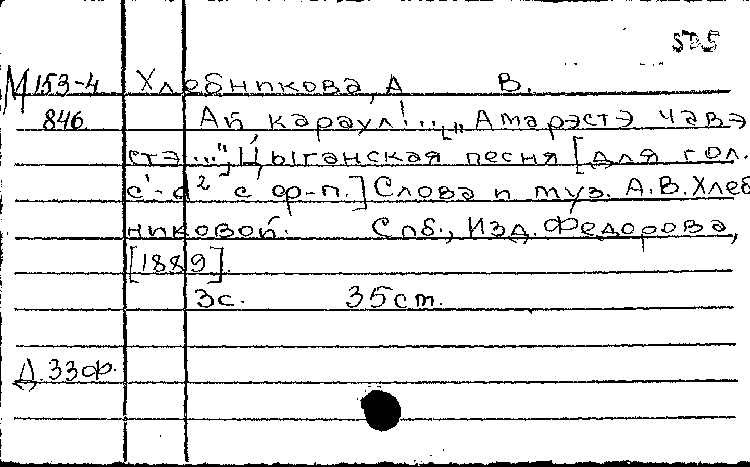 585
М 153-4 Хлебникова, А В.
846 Ай, караул!..., „Амарэстэ чавэ
стэ..."; Цыганская песня [для гол.
c¹-a² с фр-п.] Слова и муз. А.В.Хлеб
никовой. Спб., Изд. Федорова,
[1889].
3с. 35 ст.
Д. 33 ф.